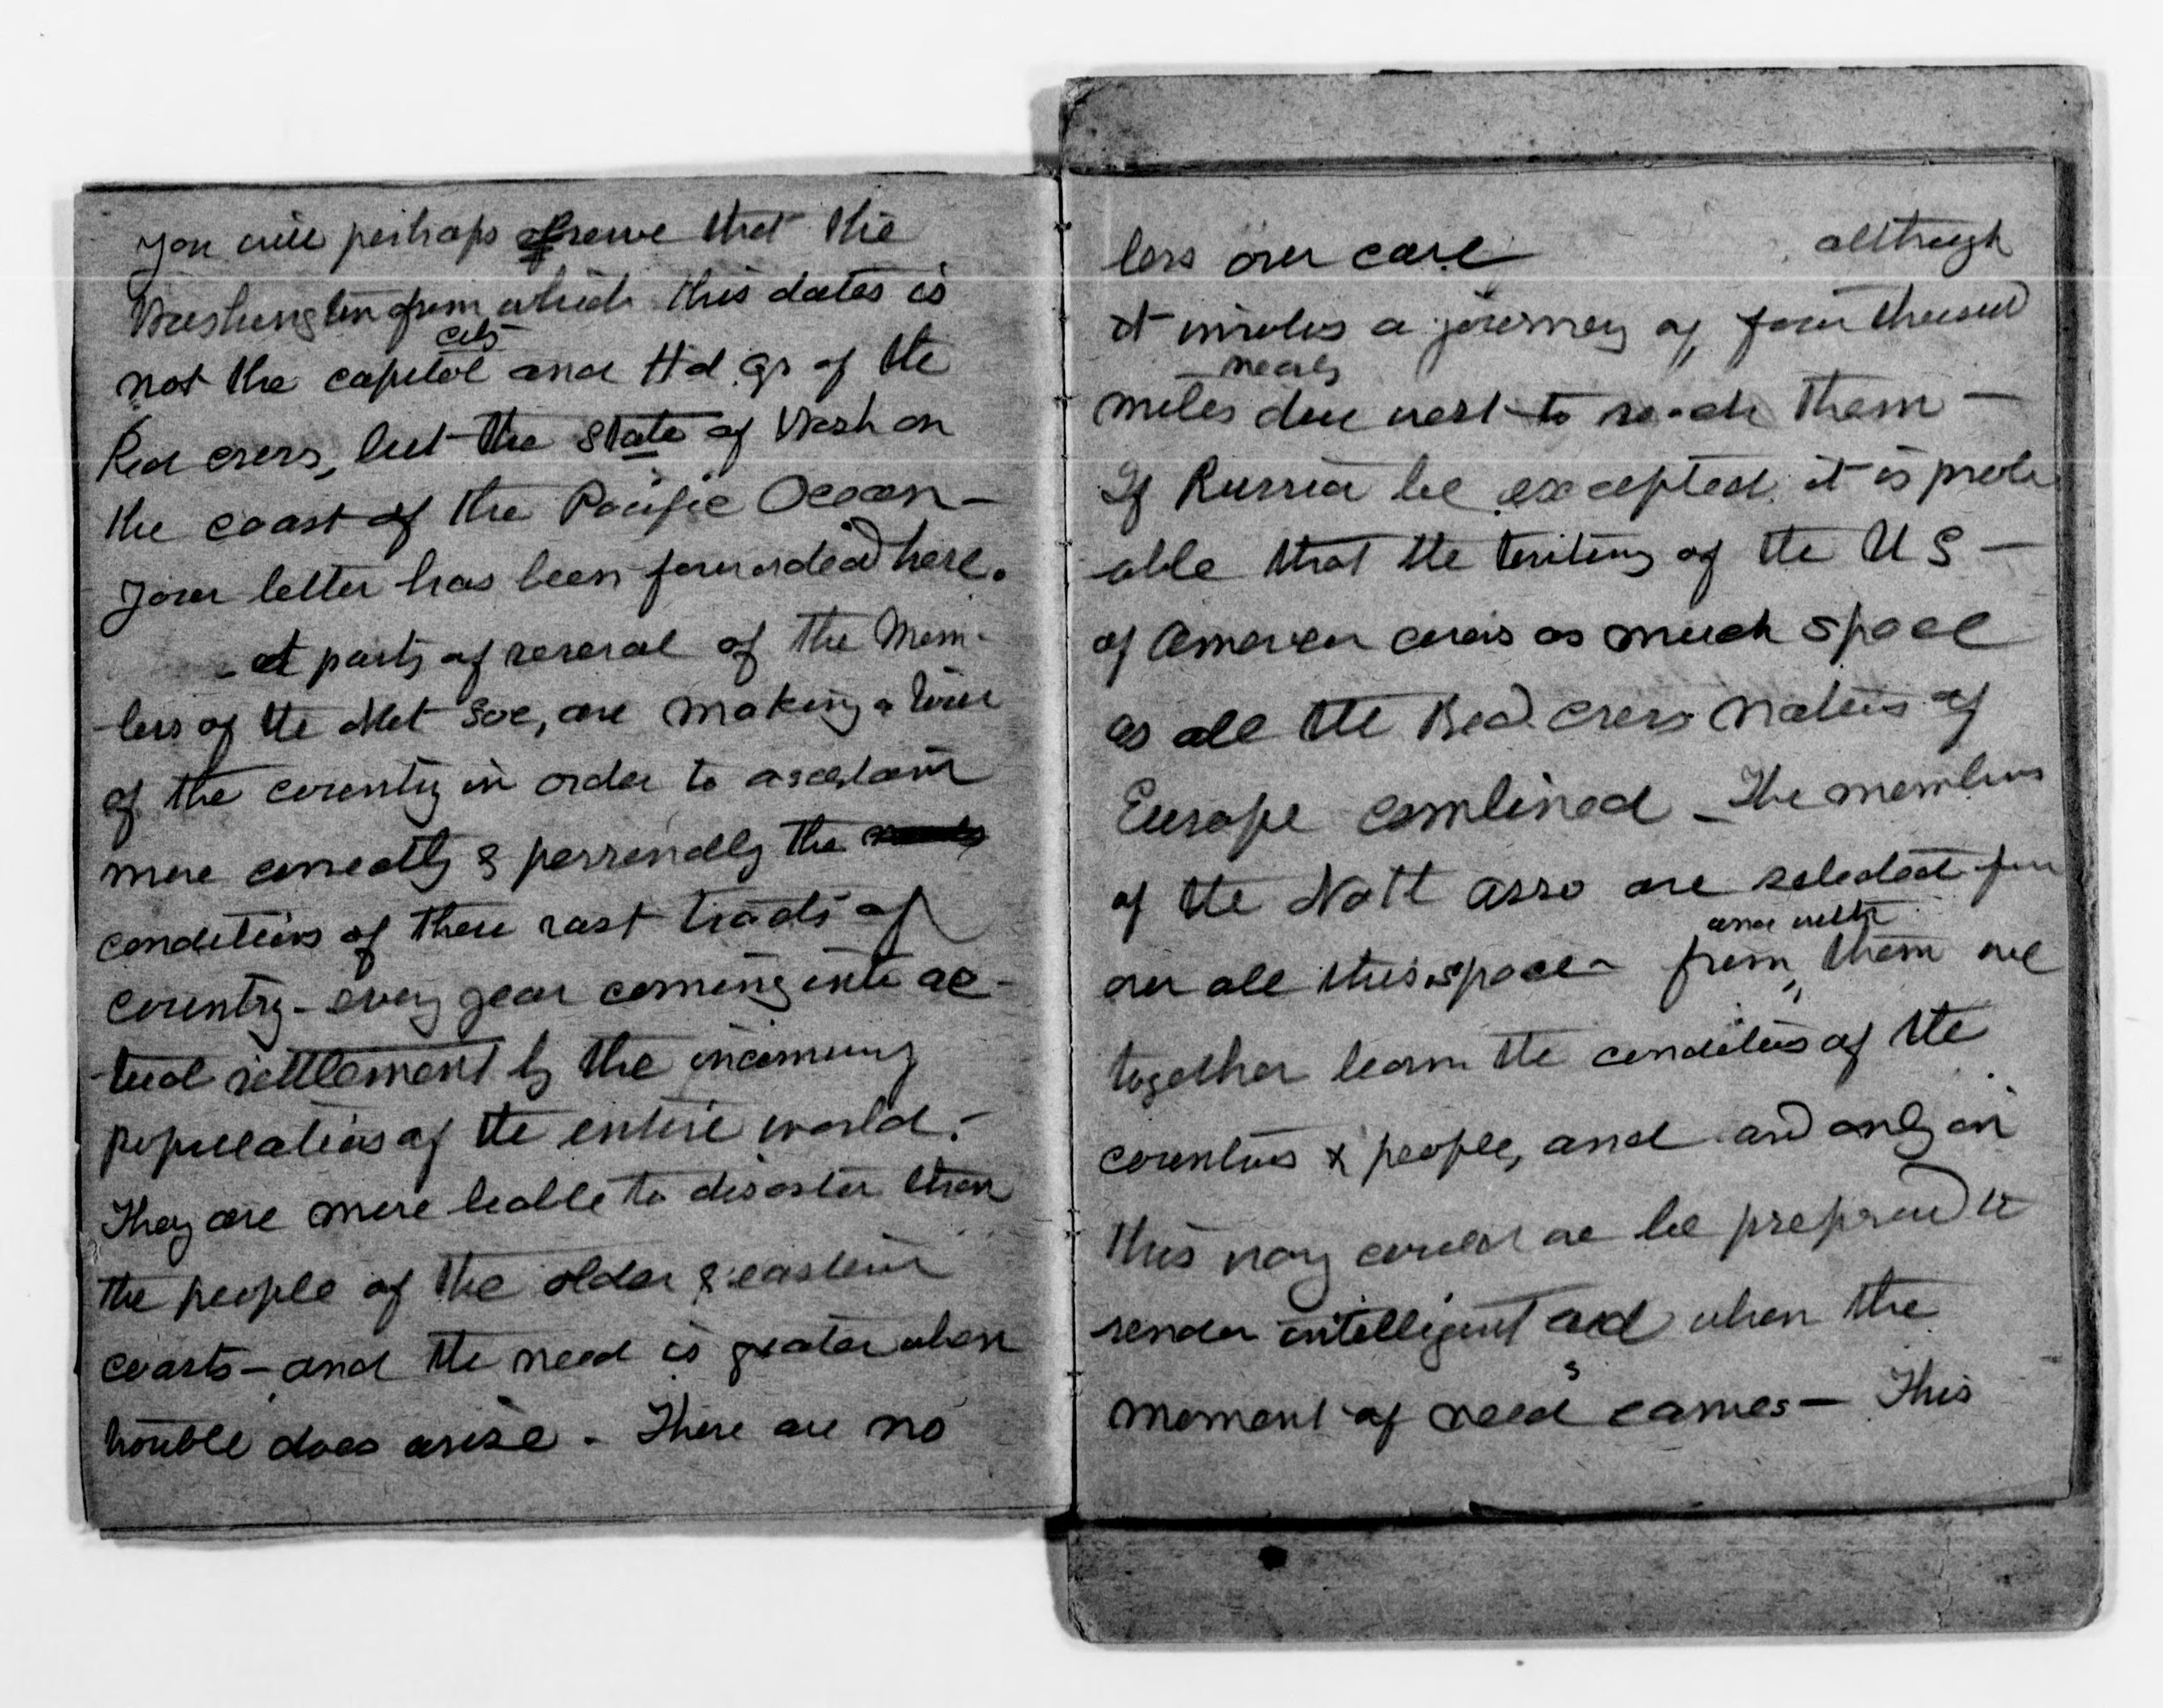 You will perhaps observe that the
Washington from which this dates is
city
not the capitol and Hd. qr of the
Red cross, but the state of Wash on
the coast of the Pacific Ocean —
Your letter has been forwarded here.
- A party of several of the Mem-
bers of the Nat Soc, are making a tour
of the country in order to ascertain
more correctly & personally the
conditions of these vast tracts of
country - every year coming into ac-
tual settlement by the incoming
populations of the entire world. -
They are more liable to disaster than
the people of the older & eastern
coasts - and the need is greater when
trouble does arise - There are no
less our care although
it involves a journey of four thousand
nearly
miles due west to reach them —
If Russia be excepted it is prob
able that the territory of the U S —
of America covers as much space
as all the Red cross Nations of
Europe combined - The members
of the Natl Asso are selected from
and with
over all this space - from them we
together learn the conditions of the
countries & people, and and only in
this way could we be prepared to
render intelligent aid when the
moment of needs comes — This